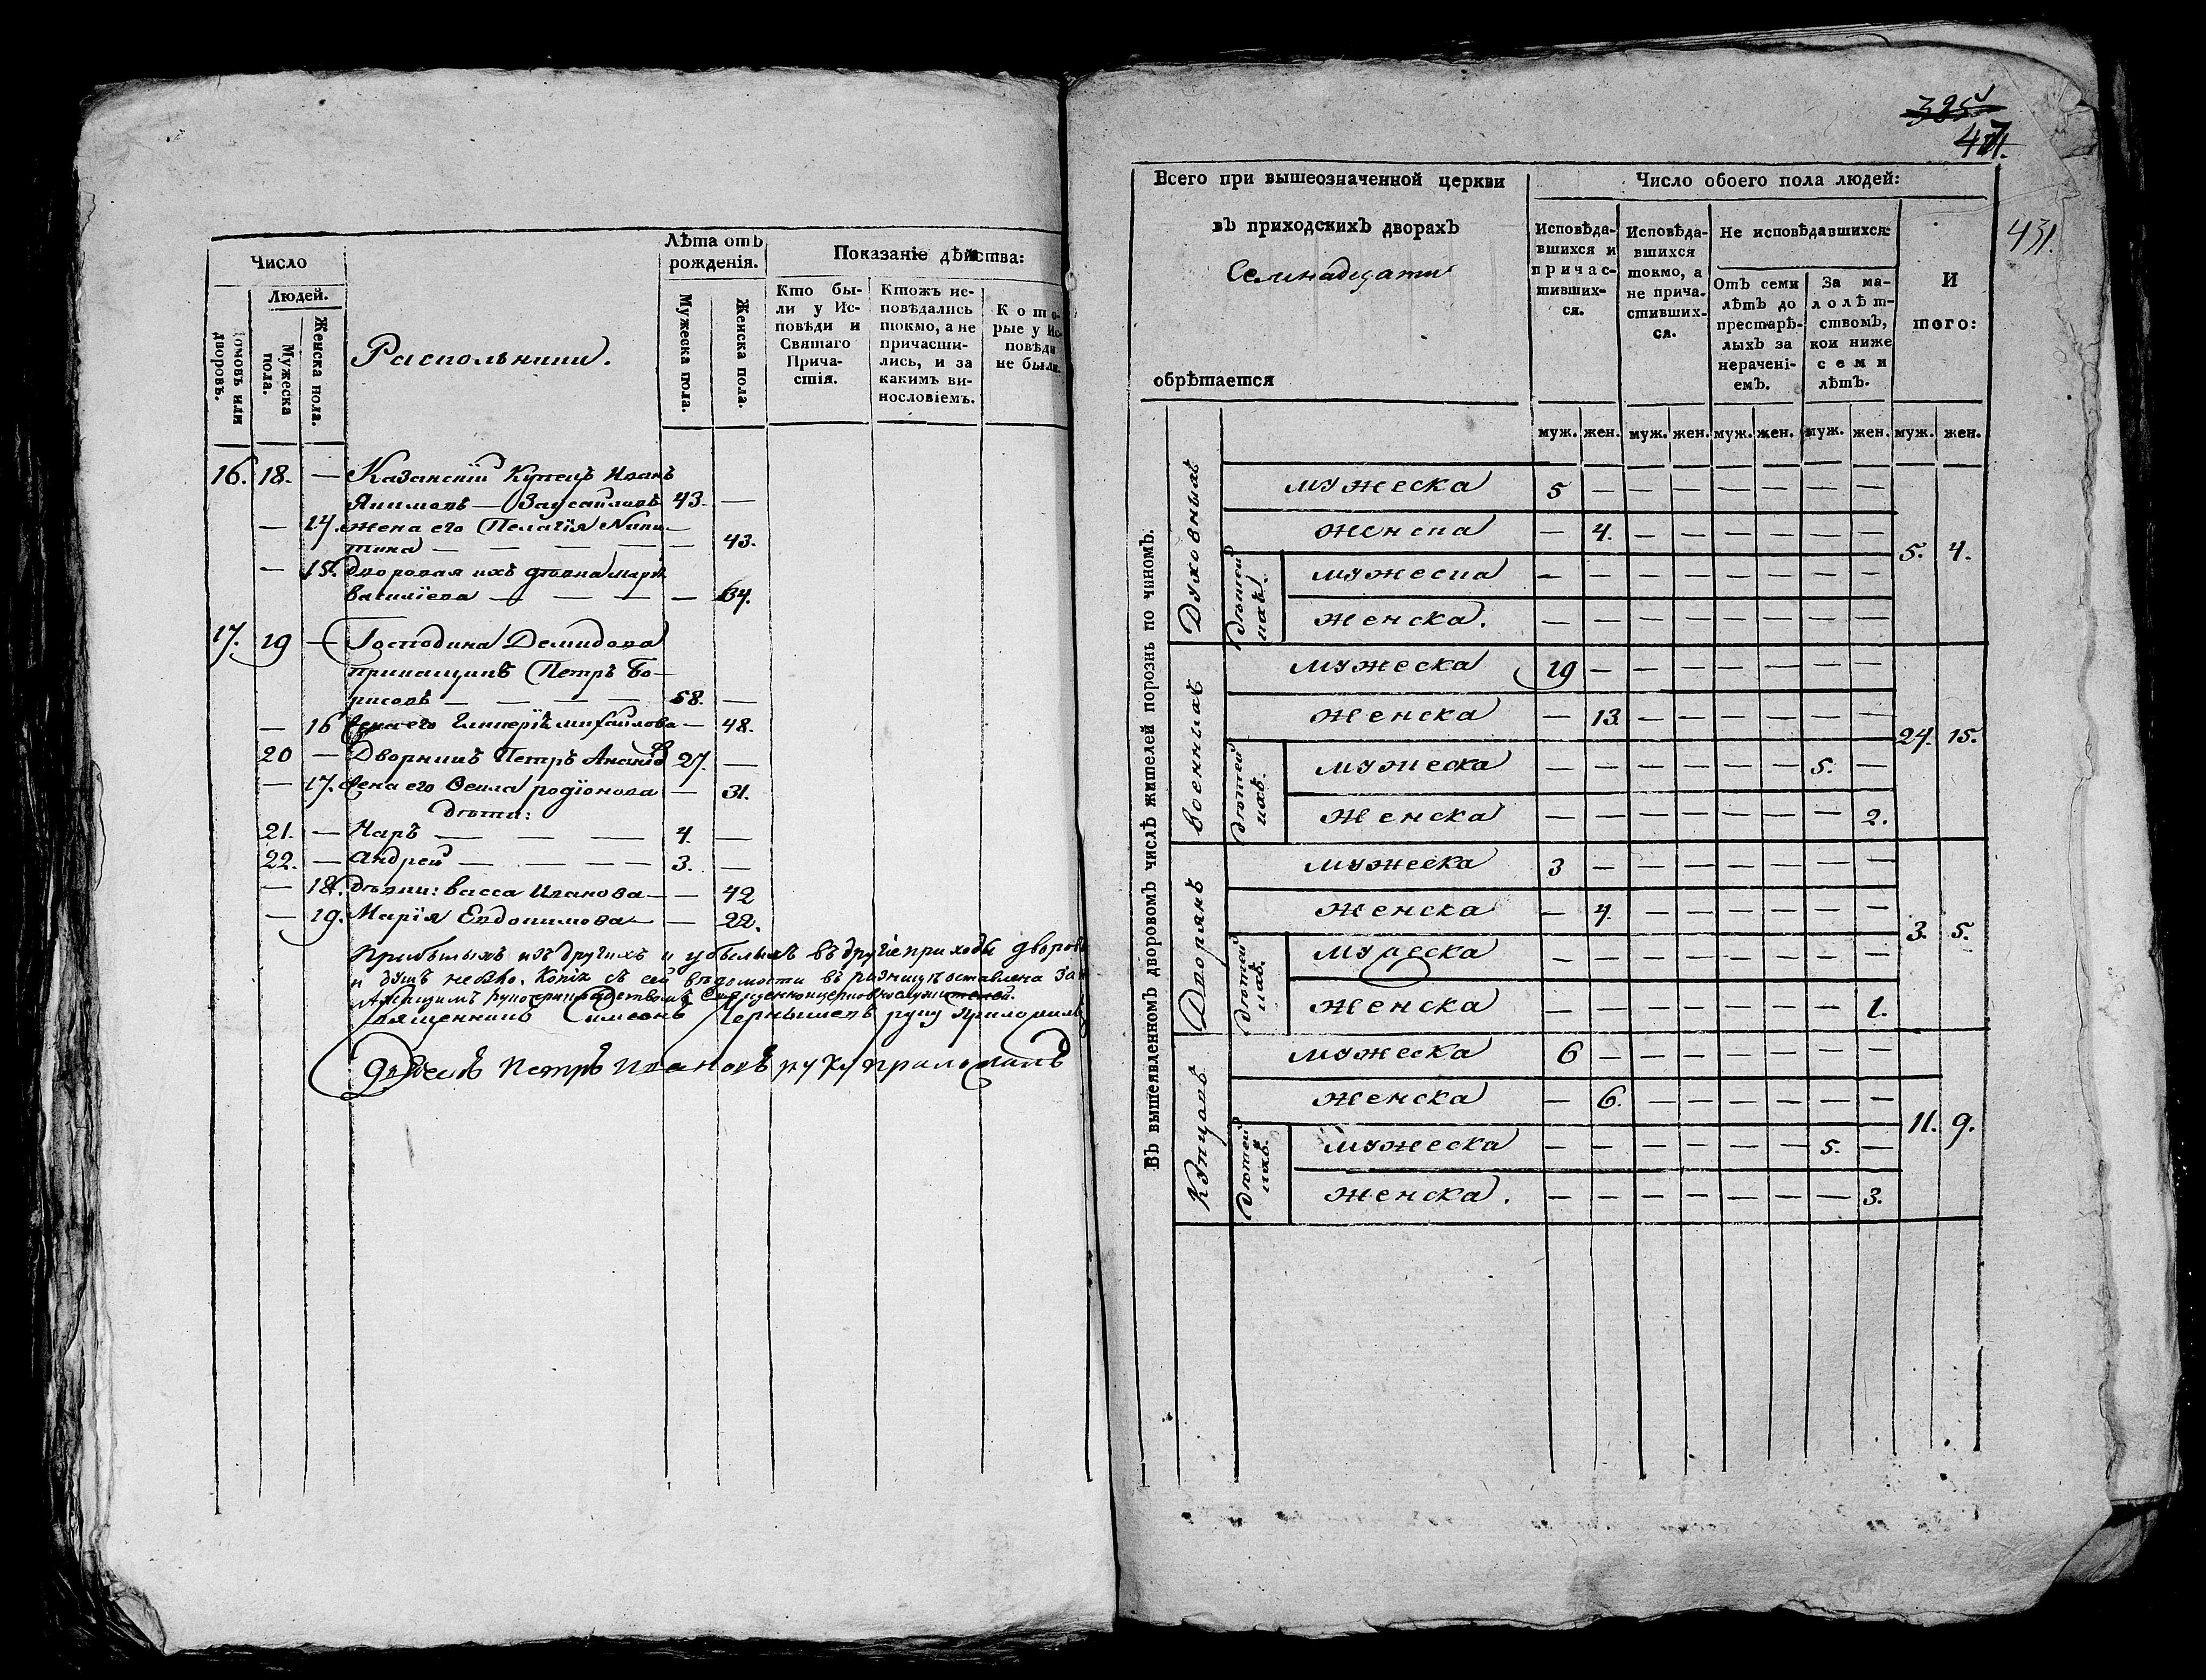 Число
Людей.
домовъ или дворовъ.
Мужеска пола.
Женска пола.
Распольники.
Лѣта отъ рожденія.
Мужеска пола.
Женска пола.
Показаніе дѣйства:
Кто были у Исповѣди и Святаго Причастія.
Ктожъ исповѣдались токмо, а не причастились, и за какимъ винословіемъ.
Которые у Исповѣди не были.
16. 18. — Казанскій Купецъ Иванъ
Якимовъ — Заусайловъ 43 —
— 14. жена его Пелагія Ники—
тина — — — — — 43.
— 15. дворовая ихъ дѣвка Марія
Василіева — — — — 64.
17. 19 — Господина Демидова
прикащикъ Петръ Бо—
рисовъ — — — — 58. —
— 16 жена его Гликерія михайлова — 48.
20 — Дворникъ Петръ 27. —
— 17. жена его Ѳекла родіонова — 31.
дѣти:
21. — Карѣ — — — 4. —
22. — Андрей — — — — 3. —
— 18. дѣвки: васса Иванова — — 42
— 19. Марія Евдокимова — — 22.
Прибылыхъ изъ другихъ и убылыхъ въ другіе приходы дворовъ
и душъ небыло. Копія съ сей вѣдомости въ ризницѣ оставлена за
священноцерковнослужителей.
Священникъ Симеонъ Чернышевъ руку приложилъ
Петръ Ивановъ руку приложилъ
385
471.
431.
Всего при вышеозначенной церкви
въ приходскихъ дворахъ
Семнадцати
обрѣтается
Число обоего пола людей:
Исповѣдавшихся и причастившихся.
Исповѣдавшихся токмо, а не причастившихся.
Не исповѣдавшихся:
Отъ семи лѣтъ до престарѣлыхъ за нераченіемъ.
За малолѣтствомъ, кои ниже семи лѣтъ.
И того:
муж. жен. муж. жен. муж. жен. муж. жен. муж. жен.
Въ вышеявленномъ дворовомъ числѣ жителей порознь по чиномъ.
Духовныхъ
мужеска 5 — — — — — — —
женска — 4. — — — — — —
5. 4.
дѣтей ихъ.
мужеска — — — — — — — —
женска. — — — — — — — —
Военныхъ
мужеска 19 — — — — — — —
женска — 13. — — — — — —
24. 15.
дѣтей ихъ.
мужеска — — — — — — 5. —
женска — — — — — — — 2.
Дворянъ
мужеска 3 — — — — — — —
женска — 4. — — — — — —
3. 5.
дѣтей ихъ.
мужеска — — — — — — — —
женска — — — — — — — 1.
Купцовъ
мужеска 6 — — — — — — —
женска — 6. — — — — — —
11. 9.
дѣтей ихъ.
мужеска — — — — — — 5. —
женска. — — — — — — — 3.